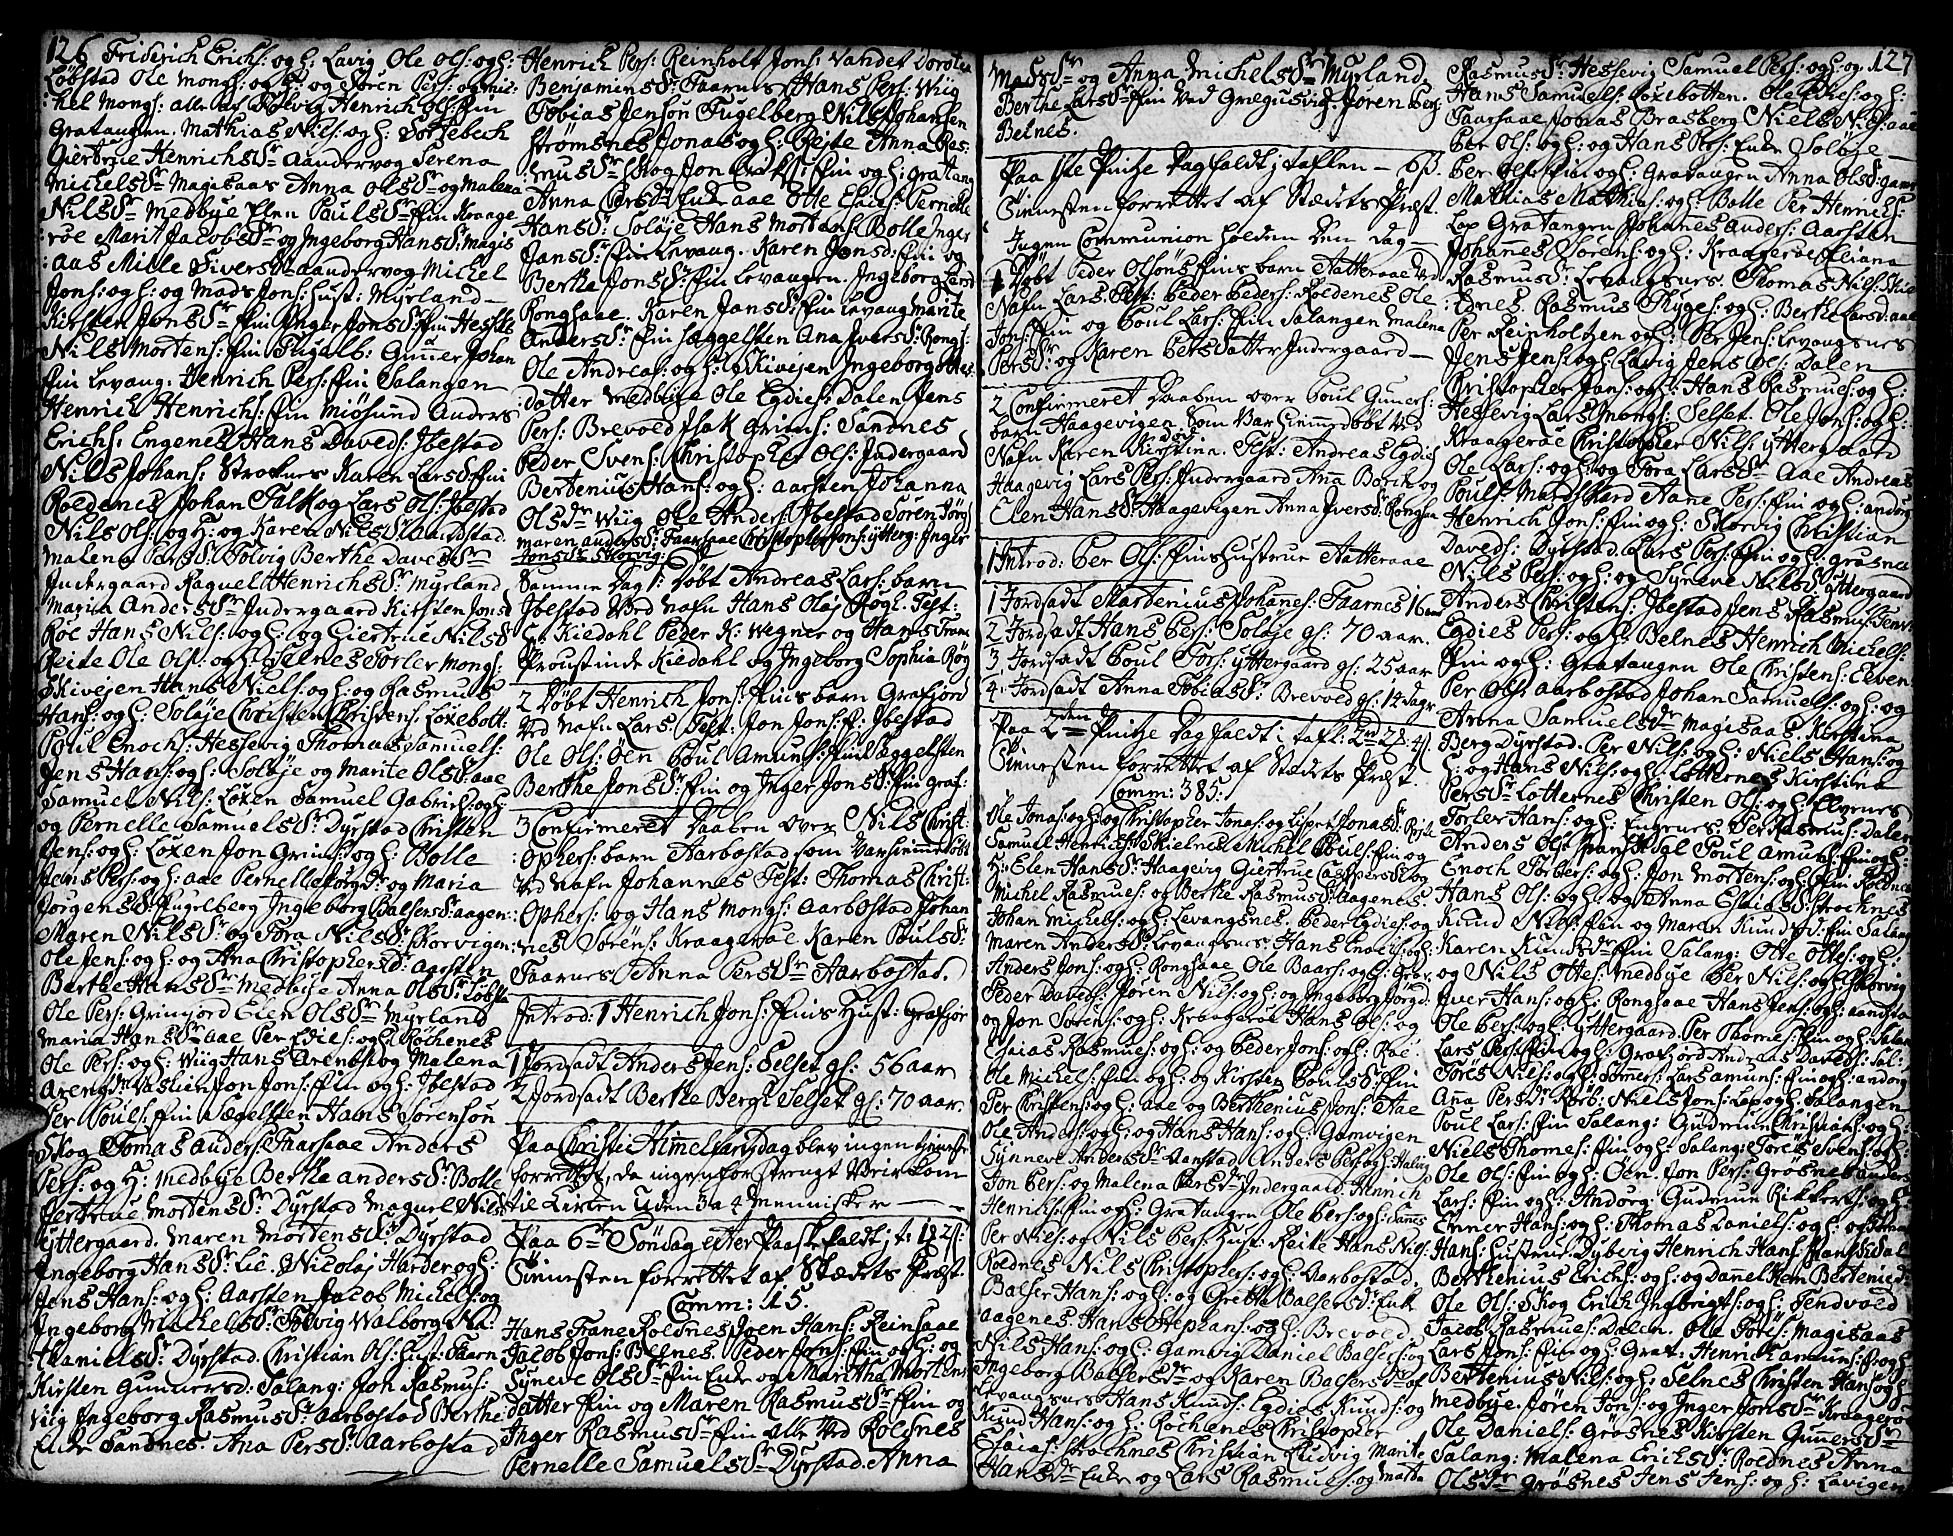 126 Friderich Erichs: og H: Lavig Ole Ols: og H:
Løbstad Ole Mongs: og H: og Sören Pers: og Mic-
:hel Mongs: alle af Tolvig Henrich Ols: Fin
Gratangen. Mathias Nils: og H: Sørfebech
Giertrue Henrichsdr Aandervog Serena
Michelsdr Magisaas Anna Olsdr og Malena
Nilsdr Medbye Elen Poulsdr Fin Kraage
:röe Marit Jacobsdr og Ingeborg Hansdr Magis
:aas Mille Siversdr Aandervog Michel
Jons: og H: og Mads Jons: Hust: Myrland
Kirsten Jonsdr Fin Inger Jonsdr Fin
Nils Mortens: Fin Fugelb: Gunner Johan
Fin Levang. Henrich Pers: Fin Salangen
Henrich Henrichs: Fin Miösund Anders
Erichs: Engenes Hans Daveds: Ibestad
Nils Johans: Straknes Karen Larsdr Fin
Roldenes Johan Falk og Lars Ols: Ibestad
Nils Ols: og H: og Karen Nilsdr Aandstad.
Malena Persdr Tolvig Berthe Davedsdr
Indergaard Raguel Henrichsdr Myrland
Marica Andersdr Indergaard Kirsten Jonsd
Röe Hans Nils: og H: og Giertrue Nilsdr
Reite Ole Ols: og H: Selnes Torler Mongs:
Skivejen Hans Niels: og H: og Rasmus
Hans: og H: Solöje Christen Christens: Löxebott:
Poul Enochs: Hessevig Thomas Samuels:
Jens Hans: og H: Solöje og Marite Olsdr: Aae
Samuel Nils: Löxen Samuel Gabriels: og H:
og Pernelle Samuelsdr Dyrstad Christen
Jens: og H: Löxen Jon Grims: og H: Bolle
Jens Pers: og H: Aae Pernelle Jörgsdr og Maria
Jörgensdr Fugelberg Ingeborg Balsersdr: Aagen:
Maren Nilsdr og Tora Nilsdr Skorvigen
Ole Jens: og H: og Ana Christophersdr: Aarsten
Berthe Hansdr Medbye Anna Olsdr: Løbsta
Ole Pers: Grimjord Elen Olsdr Myrland
Maria Hansdr Aae Per Edies: og H: Röchenes
Ole Pers: og H: Wiig Hans Arentss og Malena
Arengdr Vasli en Jon Jons: Fin og H: Ibestad
Per Pouls: Fin Sægelsten Hans Sörensön
Skog Tomas Anders: Faarsaae Anders
Pers: og H: Medbye Berthe Andersdr: Bolle
Jertrue Mortensdr Dyrstad Maguel Nils
Yttergaard. Maren Mortensdr Dyrstad
Ingeborg Hansdr Lie. Nicolaj Harder og H:
Jens Hans: og H: Aarsten Jacob Michels: og
Ingeborg Michelsdr: Tolvig Walborg Na:
:thanielsdr: Dyrstad. Christian Ols: Hust: Faarn
Kirsten Gunnersd: Salang: Jon Rasmus:
Viig Ingeborg Rasmusdr: Aarbostad Berthe
Enke Sandnes. Ana Persdr: Aarbostad
Henrich Pers: Reinholt Jons: Vandet Dorotea
Benjaminsdr: Faarnes Hans Pers: Wiig
Tobias Jensön Fugelberg Nils Johansen
Strömsnes Jonas og H: Reite Anna Ras-
:musdr Skog Jon Eriks: Fin og H: Gratang
Anna Persdr Enke Aae Otte Esaies: Pernelle
Hansdr: Solöje Hans Mortens: Bolle Inger
Jansdr: Fin Levang. Karen Jonsd: Fin og
Berthe Jonsdr: Fin Levangen. Ingeborg Larsd
Rongsaae. Karen Jansdr: Fin Levang Marite
Andersdr: Fin Sæggelsten Ana Iversdr: Rongs:
Ole Andreas: og H: Skivejen Ingeborg Ottes
:datter Medbye Ole Egdies: Dalen Jens
Pers: Brevold Isak Grims: Sandnes
Peder Svens: Christopher Ols: Indergaard
Bertenius Hans: og H: Aarsten Johanna
Olsdr Wiig Ole Anders: Ibestad Sören Jörg:
Maren Andersdr: Faarsaae Christopher Jons: Ytterg: Inger
Jonsdr Skorvig:
Samme Dag 1: Døbt Andreas Lars: barn
Ibestad ved Nafn Hans Oläj Rögl. Test:
Hr Kiedahl Peder K: Wegner og Hans Trane
Proustinde Kiedahl og Ingeborg Sophia Rög
2 Døbt Henrich Jons: Fins barn Grafjord
ved Nafn Lars. Test: Jon Jons: F: Ibestad
Ole Ols: Øen Poul Amuns: Fin Sæggelsten
Berthe Jonsdr: Fin og Inger Jonsdr: Fin Graf:
3 Confirmeret Daaben over Nils Christ:
:ophers: barn Aarbostad som var hiemmedøbt
ved Nafn Johannes Test: Thomas Christ:
:ophers: og Hans Mongs: Aarbostad Johan
:nes Sörens: Kraageröe Karen Poulsdr:
Faarnes Anna Persdr Aarbostad.
Introd: 1 Henrich Jons: Fins Hust: Grafjor
1 Jordsadt Anders Jens: Selset gs: 56 aar
2 Jordsadt Berthe Bergt Selset gs: 70 aar.
Paa Christi Himmelfartsdag blev ingen tieneste
forrettet, da ingen for strengt Veir kom
til Kirken uden 3 a 4 Mennisker
Paa 6te Söndag efter Paaske faldt i t: 1 2
Tienesten forrettet af Stedets Præst.
Comm: 15.
Hans Trane Roldnes Joen Hans: Reinsaae
Jacob Jons: Belnes. Peder Jons: Fin og H: og
Syneve Olsdr Fin Enke og Maritha Mortens
datter Fin og Maren Rasmusdr Fin og
Inger Rasmusdr Fin alle ved Roldnes
Pernelle Samuelsdr Dyrstad. Anna
Madsdr og Anna Michelsdr Myrland.
Berthe Larsdr Fin ved Gregusvig. Jören Pers:
Belnes.
Paa 1ste Pintze Dag faldt i taflen — 6 β.
Tienesten forrettet af Stædets Præst.
Ingen Communion holden den Dag —
1 Døbt Peder Olsöns Fins barn Aatteraae ved
Nafn Lars. Test: Peder Peders: Roldenes Ole
Jons: Fin og Poul Lars: Fin Salangen Malena
Persdr og Karen Persdatter Indergaard —
2 Confirmeret Daaben over Poul Guners:
barn Haagevigen som var hiemmedøbt ved
Nafn Karen Kirstina. Test: Andreas Egdies
Haagevig Lars Pers: Indergaard Anna Borch og
Elen Hansdr Haagevigen Anna Iversdr Rongsaa
1 Introd: Per Ols: Fins hustrue Aatteraae
1 Jordsadt Martenius Johannes: Faarnes 16
2 Jordsadt Hans Pers: Solöje gs: 70 aar.
3 Jordsadt Poul Tors: Yttergaard gs: 25 aar
4 Jordsadt Anna Tobiasdr Brevold gs: 14 dage
Paa 2den Pintze Dag faldt i tafl: 2
Tienesten forrettet af Stædets Præst.
Comm: 385:
Ole Jonas: og H: og Christopher Jonas: og Lisbet Jonasdr: Rejte
Samuel Henrichs: Skielnes Michel Pouls: Fin og
H: Elen Hansdr Haagevig Giertrue Caspersdr og
Michel Rasmus: og Berthe Rasmusdr: Aagenes.
Johan Michels: og H: Levangsnes. Peder Egdies: og
Maren Andersdr: Levangsnes. Hans Enoch: og H:
Anders Jons: og H: Rongsaae Ole Baars: og H: Grov
Peder Daveds: Jören Nils: og H: og Ingeborg Jörgd:
og Jon Sörens: og H: Kraageröe Hans Ols: og
Esaias Rasmus: og H: og Peder Jons: og H: Röe
Ole Michels: Fin og H: og Kirsten Poulsdr: Fin
Per Christens: og H: Aae og Berthenius Jons: Aae
Ole Anders: og H: og Hans Hans: og H: Gamvigen
Synneve Andersdr Aanstad Anders Pers: og H: Haling
Jon Pers: og Malena Persdr Indergaard. Henrich
Henrichs: Fin og H: Gratangen Ole Pers: og H:
Per Niels: og Nils Pers: Hust: Reite Hans Nils:
Roldnes Nils Christophers: og H: Aarbostad.
Balser Hans: og H: og Grethe Balsersdr: Enke
Aagenes. Hans Stephans: og H: Brevold.
Nils Hans: og H: Gamvig Daniel Balsers: og
Ingeborg Balsersdr og Karen Balsersdr af
Levangsnes Hans Knuds: Egdies Knuds: og
Knud Hans: og H: Röchenes Christopher
Esaias: Strochnes Christian Ludvig Marite
Hansdr Enke og Lars Rasmus: og Marta
127
Rasmusdr: Hessevig Samuel Pers: og H: og
Hans Samuels: Löxebotten. Ole Edies: og H:
Faarsaae Jonas Brasberg Niels Nils: Aae
Per Ols: og H: og Hans Pers: Enke Solöje —
Per Ols: Fin og H: Gratangen Anna Olsdr: Gamv
Mathias Mathis: og H: Bolle Per Henrichs:
Lop Gratangen Johannes Anders: Aarsten
Johannes Sörens: og H: Kraageröe Eliana
Rasmusdr: Levangsnes. Thomas Nils: Skie
:lnes Rasmus Thyges: og H: Berthe Larsd: Aae
Per Reinholtzen og H: Per Jens: Levangsnes
Jens Jens: og H: Lavig Jens Ols: Dalen
Christopher Jans: og H: Hans Rasmus: og H:
Hessevig Lars Mongs: Selset. Ole Jons: og H:
Kraageröe Christopher Nils: Yttergaard
Ole Lars: og H: og Tora Larsdr Aae Andreas
Pouls: Aane Pers: Fin og H: Andorg
Henrich Jons: Fin og H: Skorvig Christian
Daveds: Dyrstad. Lars Pers: Fin og H: Grøsnes
Nils Pers: og H: og Syneve Nilsdr Yttergaard
Anders Christens: Ibestad Jens Rasmus:
Egdies Pers: og H: Belnes Henrich Michels:
Fin og H: Gratangen Ole Christens: Eleven
Per Ols: Aarbostad Johan Samuels: og H: og
Anna Samuelsdr Magisaas. Kirstina
Berg Dyrstad. Per Nils: og H: Niels Hans: og
H: og Hans Nils: og H: Lotternes Kirstina
Persdr: Lotternes Christen Ols: og H:
Torler Hans: og H: Engenes. Per Rasmus: Dalen
Anders Ols: Spansdal Poul Amuns: Fin og H:
Enoch Torbers: og H: Jon Mortens: og H: Fin Roldnes
Hans Ols: og H: og Anna Esaiasdr: Strochnes
Knud Nils: Fin og Maren Knudsdr: Fin Salang
Karen Knudsdr Fin Salang: Otte Ottes: og H:
og Nils Ottes: Medbye Per Nils: og H: Skorvig
Iver Hans: og H: Rongsaae Hans Jens: og H: Aandstad
Ole Pers: og H: Yttergaard. Per Thomes: Fin og H: Salan
Lars Pers: Fin og H: Grafjord Andreas Daveds: Sal:
Töres Nils: og H: Lars Amuns: Fin og H: Andorg
Ana Persdr: Rörb: Niels Jons: Lop og H: Salangen
Poul Lars: Fin Salang: Gudmun Christians: og H:
Niels Thomes: Fin og H: Salang: Törös Svens: og H:
Ole Ols: Fin og H: Øen. Jon Pers: Grosnes Anders
Lars: Fin og H: Andorg. Gudmun Rikkerts: og H:
Enner Hans: og H: Thomas Daniels: og H: og Tomas
Hans: Hustrue Dybvig Henrich Hans: Spansdal
Berthenius Erichs: og H: og Daniel Kem Bertenied
Ole Ols: Skog Erich Ingbrigts: og H: Tendvold
Jacob Rasmus: Dalen. Ole Törös: Magisaas
Lars Jons: Fin og H: Grat: Henrich Amuns: F: og H:
Bertenius Nils: og H: Selnes Christen Hans: og H:
Medbye. Jören Jons: og Inger Jonsdr Kraagerö
Ole Daniels: Grøsnes Kirsten Gunersdr
Salang: Malena Erichsdr: Roldnes Anna
Olsdr Grøsnes Jens Jens: og H: Lavigen